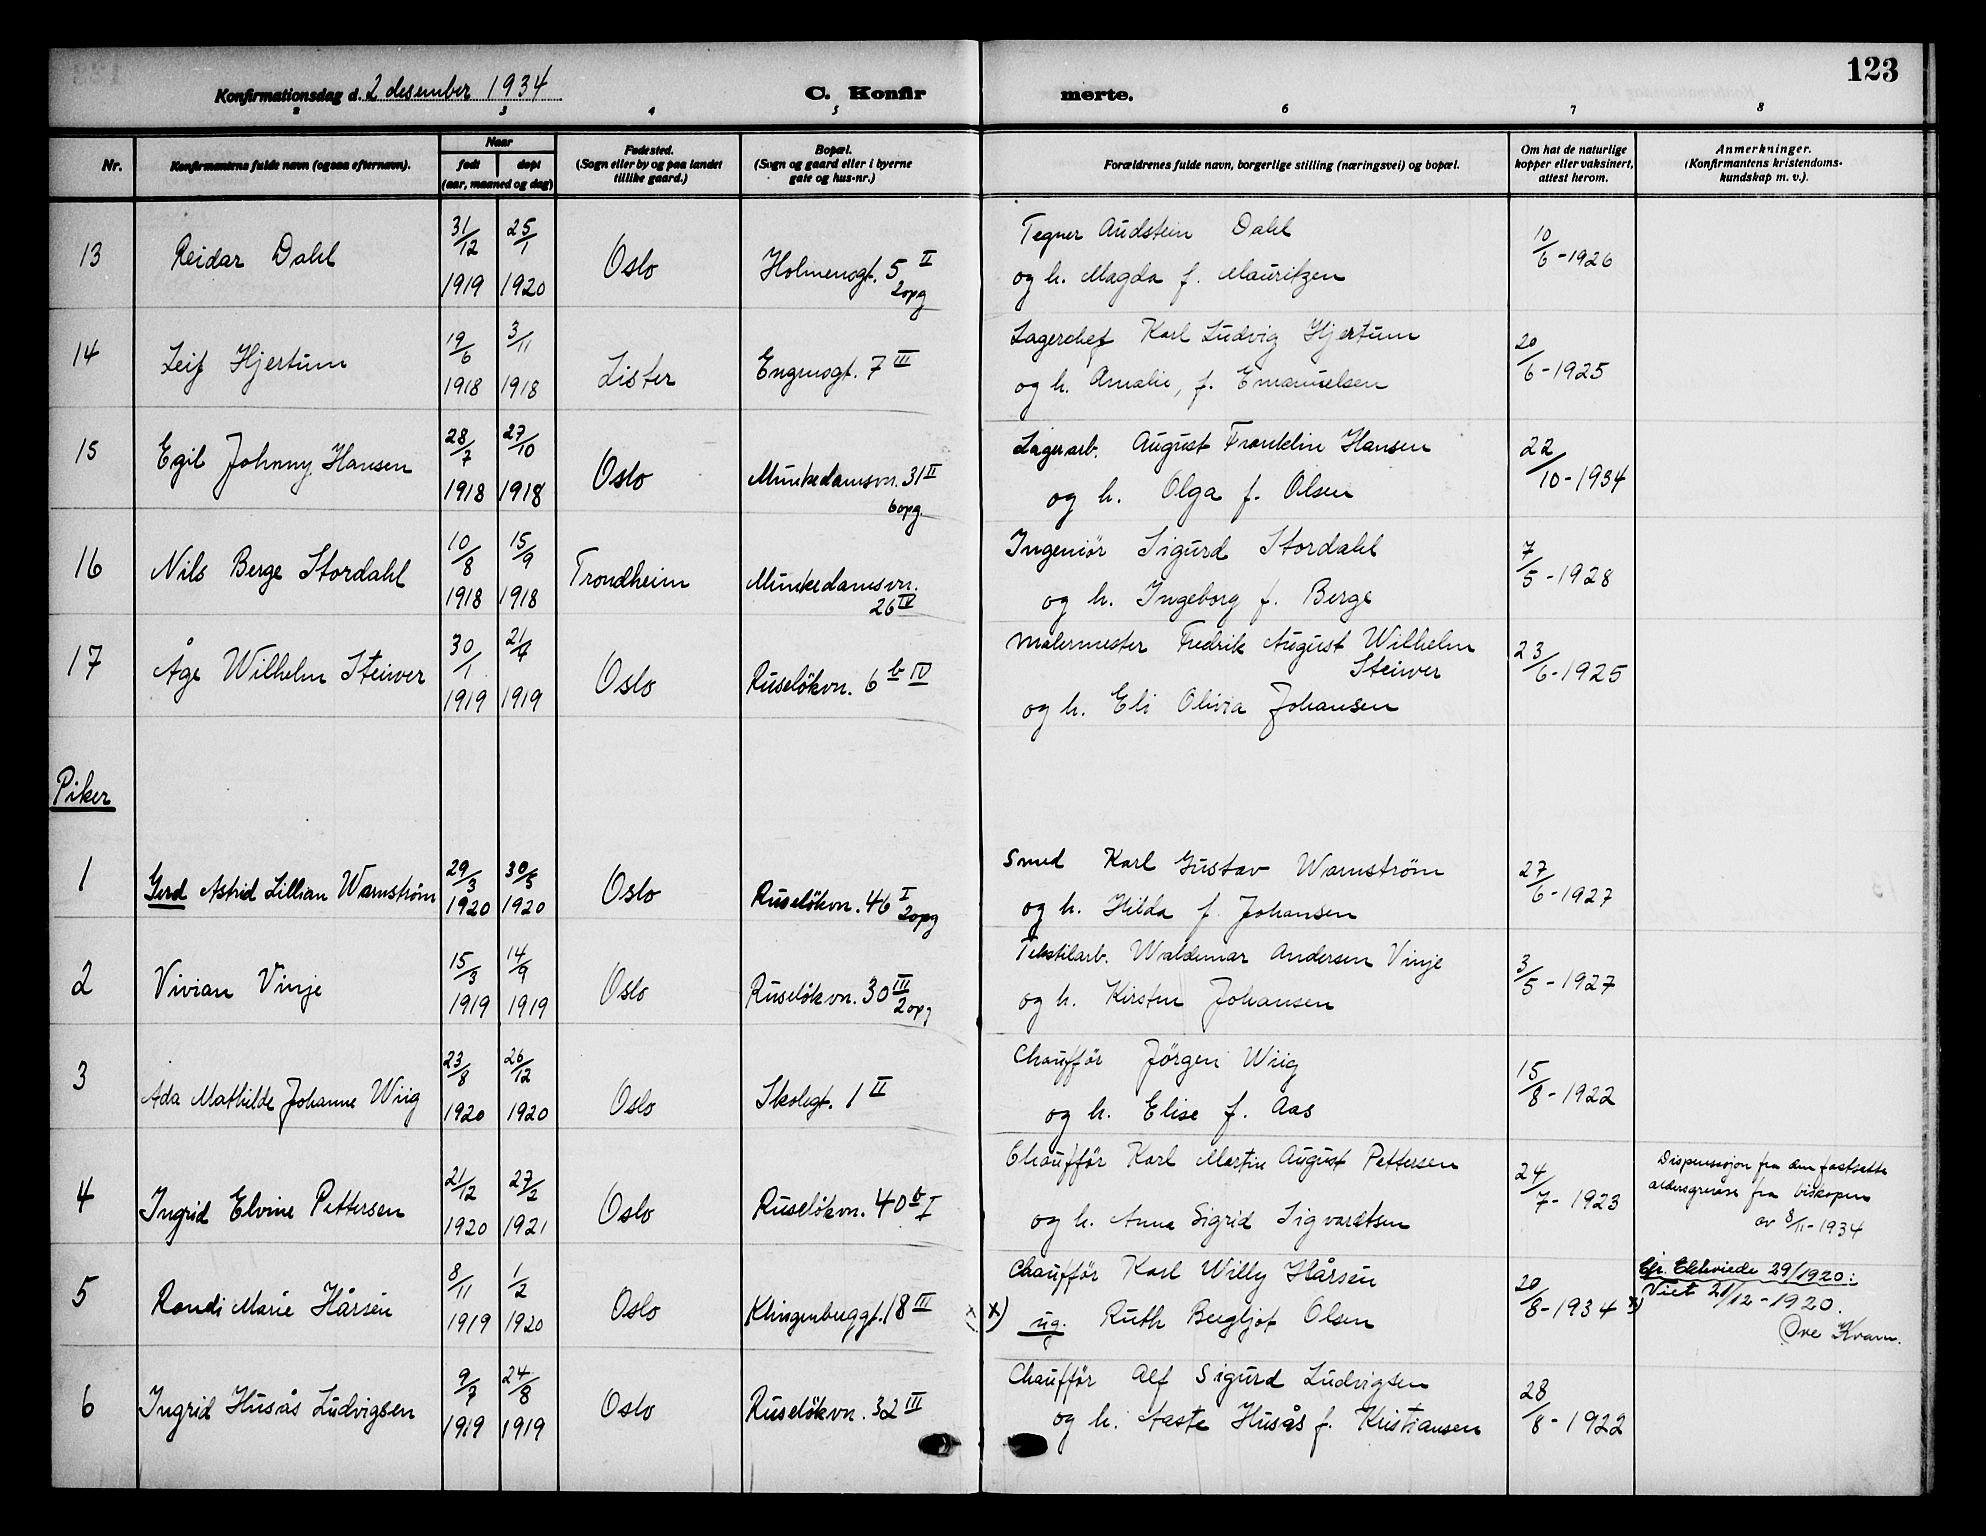 123
Konfirmationsdag d. 2 desember 1934 C. Konfir merte.
2 3 4 5 6 7 8
Nr.
Konfirmantens fulde navn (ogsaa efternavn).
Naar
født døpt
(aar, maaned og dag)
Fødested.
(Sogn eller by og paa landet
tillike gaard.)
Bopæl.
(Sogn og gaard eller i byerne
gate og hus-nr.)
Forældrenes fulde navn, borgerlige stilling (næringsvei) og bopæl.
Om hat de naturlige
kopper eller vaksinert,
attest herom.
Anmerkninger.
(Konfirmantens kristendoms-
kundskap m. v.).
13 Reidar Dahl 31/12 1919 25/1 1920 Oslo Holmensgt. 5 II 2opg
Tegner Audstein Dahl
og h. Magda f. Mauritzen
10/6-1926
14 Leif Hjertum 19/6 1918 3/11 1918 Lister Engensgt. 7 III
Lagerchef Karl Ludvig Hjertum
og h. Amalie, f. Emanuelsen
20/6-1925
15 Egil Johnny Hansen 28/7 1918 27/10 1918 Oslo Munkedamsvn. 31 II 6opg.
Lagerarb. August Franklin Hansen
og h. Olga f. Olsen
22/10-1934
16 Nils Berge Stordahl 10/8 1918 15/9 1918 Trondheim Munkedamsvn. 26 IV
Ingeniör Sigurd Stordahl
og h. Ingeborg f. Berge
7/5-1928
17 Åge Wilhelm Steiwer 30/1 1919 21/4 1919 Oslo Ruselökvn. 6 b IV
Malermester Fredrik August Wilhelm
Steiwer
og h. Eli Olivia Johansen
23/6-1925
Piker
1 Gerd Astrid Lillian Warnström 29/3 1920 30/5 1920 Oslo Ruselökvn. 46 I 2opg
Smed Karl Gustav Warnström
og h. Hilda f. Johansen
27/6-1927
2 Vivian Vinje 15/3 1919 14/9 1919 Oslo Ruselökvn. 30 III 2opg
Tekstilarb. Waldemar Andersen Vinje
og h. Kirsten Johansen
3/5-1927
3 Ada Mathilde Johanne Wiig 23/8 1920 26/12 1920 Oslo Skolegt. 1 II
Chaufför Jörgen Wiig
og h. Elise f. Aas
15/8-1922
4 Ingrid Elvine Pettersen 21/12 1920 27/2 1921 Oslo Ruselökvn. 40 b I
Chaufför Karl Martin August Pettersen
og h. Anna Sigrid Sigvardtsen
24/7-1923
Dispensasjon fra den fastsatte
aldersgrense fra biskopen
av 8/11-1934
5 Randi Marie Hårsén 8/11 1919 1/2 1920 Oslo Klingenberggt. 18 III
Chaufför Karl Willy Hårsén
x) ug. Ruth Bergljot Olsen
20/8-1934 x)
Cfr. Ekteviede 29/1920:
Viet 21/12-1920.
Ove Kvam.
6 Ingrid Husås Ludvigsen 9/7 1919 24/8 1919 Oslo Ruselökvn. 32 III
Chaufför Alf Sigurd Ludvigsen
og h. Aaste Husås f. Kristiansen
28/8-1922